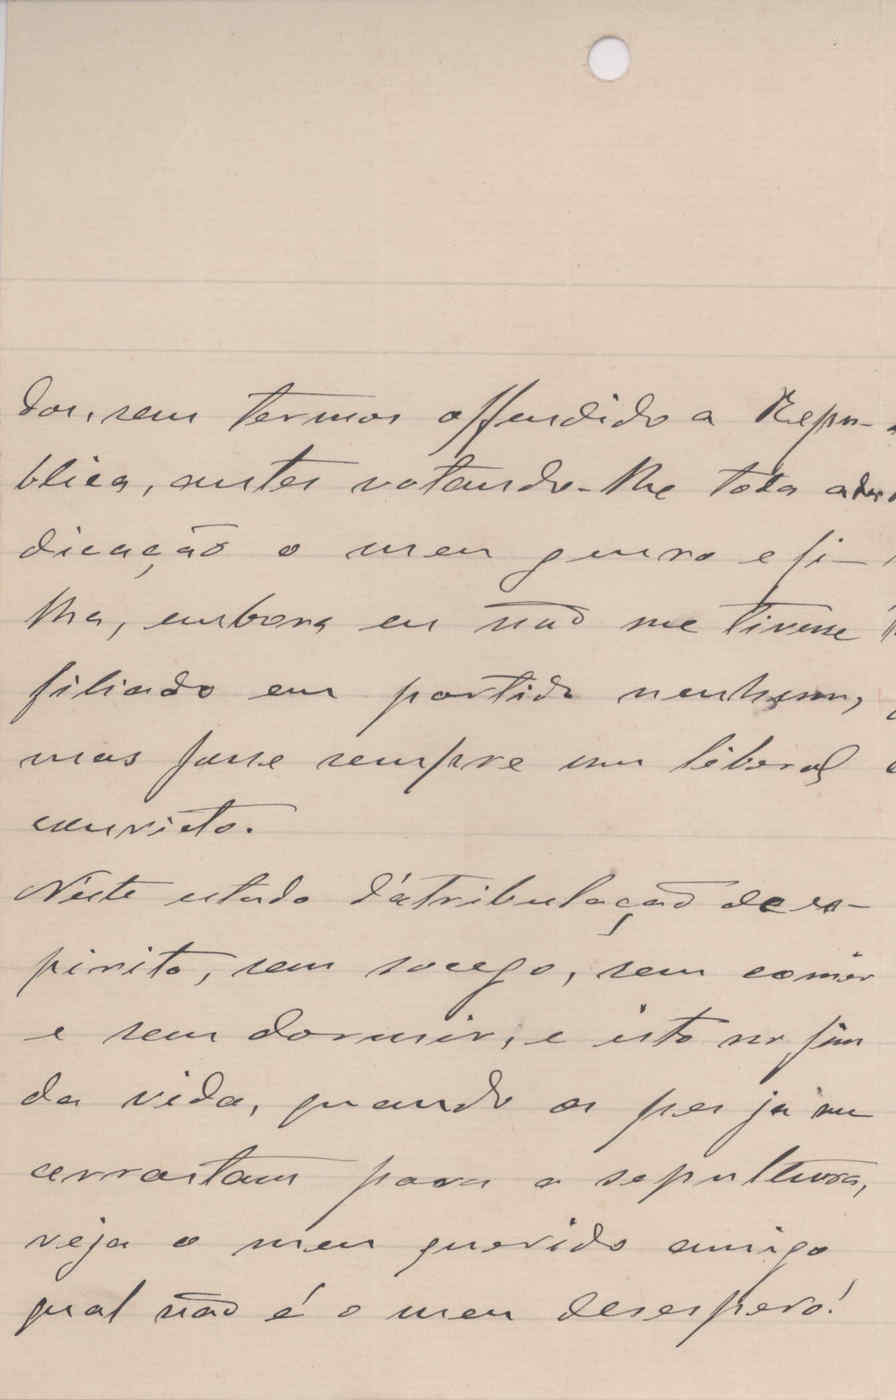 dos, sem termos offendido a Repu-
blica, antes votando-lhe toda a de-
dicação o meu genro e fi-
lha, embora eu não me tivesse
filiado em partido nenhum,
mas fosse sempre um liberal
convicto.
N'este estado d'atribulação de es-
pirito, sem socego, sem comer
e sem dormir, e isto no fim
da vida, quando os pes já me
arrastam para a sepultura,
veja o meu querido amigo
qual não é o meu desespero!